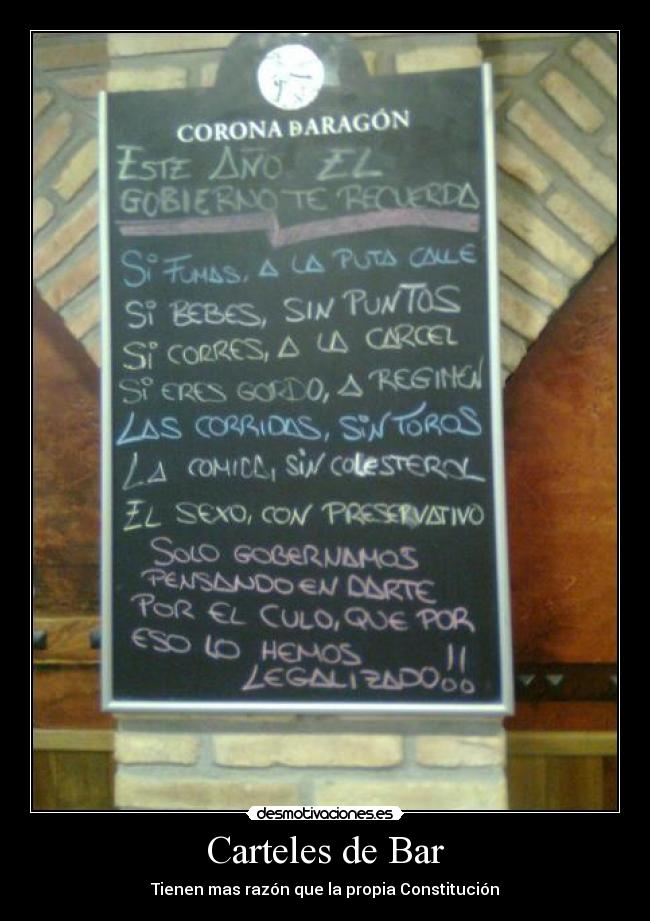 CORONA DARAGÓN
ESTE AÑO EL
GOBIERNO TE RECUERDA
Si FUMAS, A LA PUTA CALLE
Si BEBES, SIN PUNTOS
Si CORRES, A LA CARCEL
Si ERES GORDO, A REGIMEN
LAS CORRIDAS, SiN TOROS
LA COMIDA, SiN COLESTEROL
EL SEXO, CON PRESERVATIVO
SOLO GOBERNAMOS
PENSANDO EN DARTE
POR EL CULO, QUE POR
ESO LO HEMOS
LEGALIZADO!!
desmotivaciones.es
Carteles de Bar
Tienen mas razón que la propia Constitución